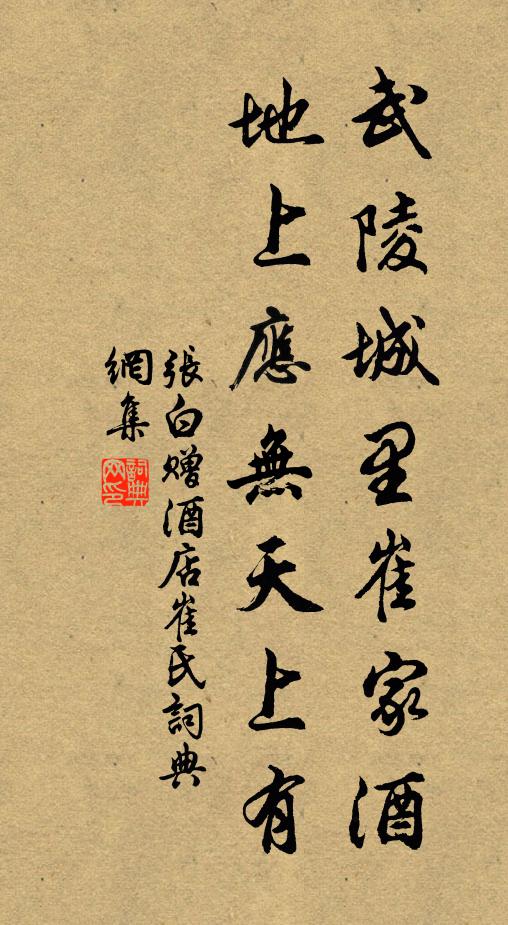 武陵城里崔家酒
地上應無天上有
張白赠酒店崔氏詞典
網集
詞典網印